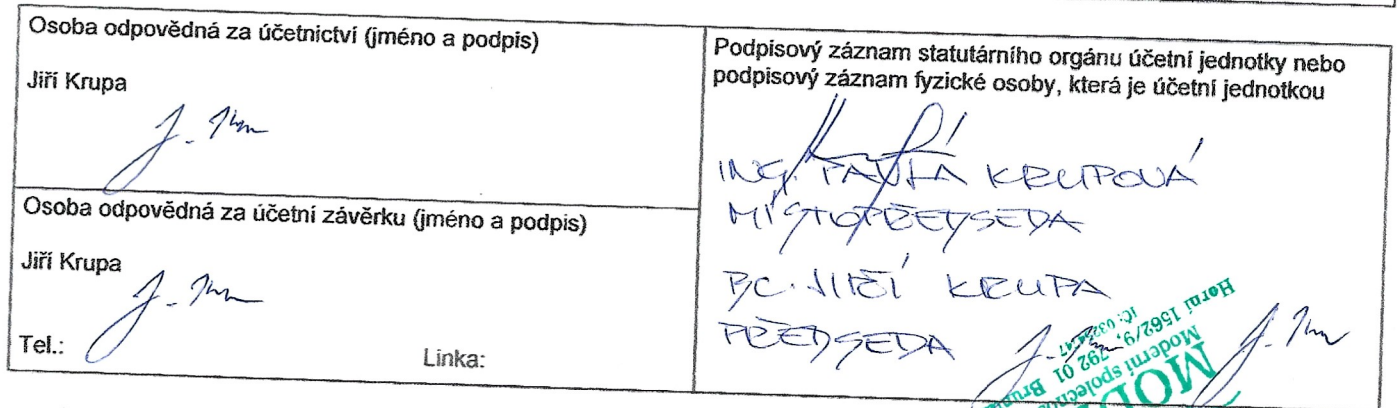 Osoba odpovědná za účetnictví (jméno a podpis)
Jiří Krupa
Osoba odpovědná za účetní závěrku (jméno a podpis)
Jiří Krupa
Tel.:
Linka:
Podpisový záznam statutárního orgánu účetní jednotky nebo
podpisový záznam fyzické osoby, která je účetní jednotkou
ING. PAVLA KRUPOVÁ
MÍSTOPŘEDSEDA
BC. JIŘÍ KRUPA
PŘEDSEDA
Moderní
Horní 1562/9, 792 01